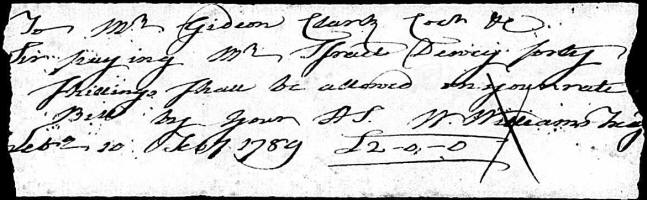 To Mr Gideon Clark Coll &c
Sir paying Mr Israel Dewey forty
shillings shall be allowed on your rate
Bill by your H S. W Williams Treaś
10 1789 £2-0-0